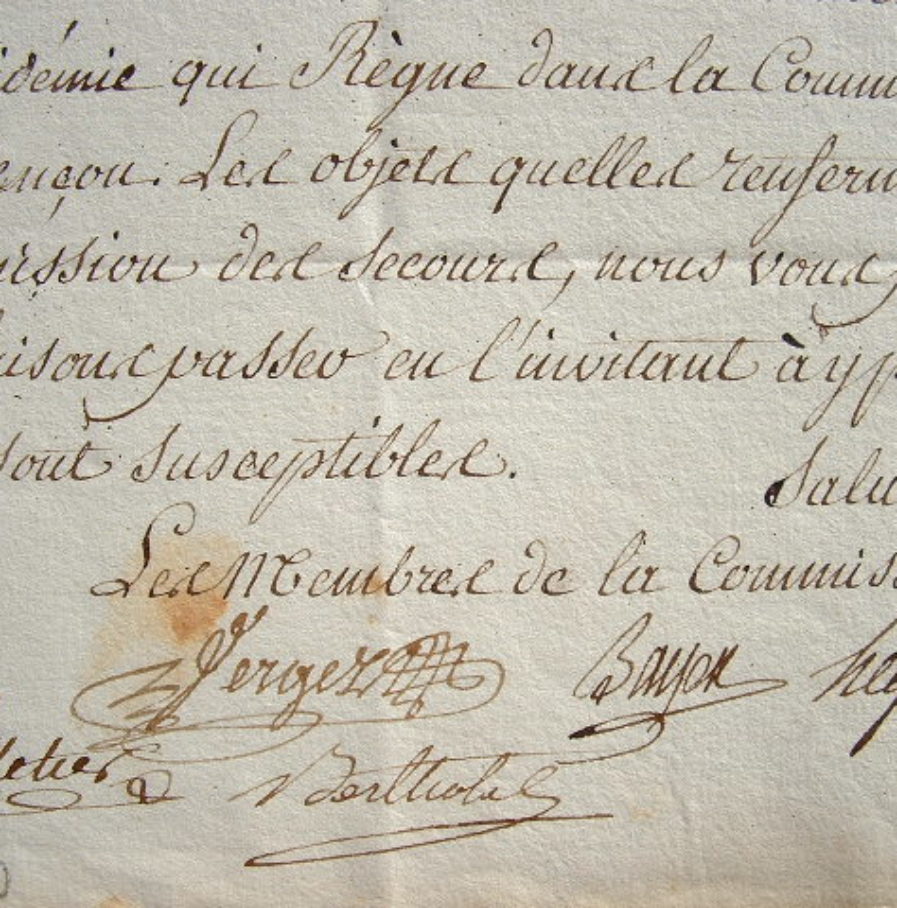 idémie qui Règne dans la Commu
ençon. Les objets quelles renferm
ission des secours, nous vous
isons passer en l'invitant à y p
sont susceptibles.
Salu
Les Membres de la Commiss
Vergez Bayen
Berthollet